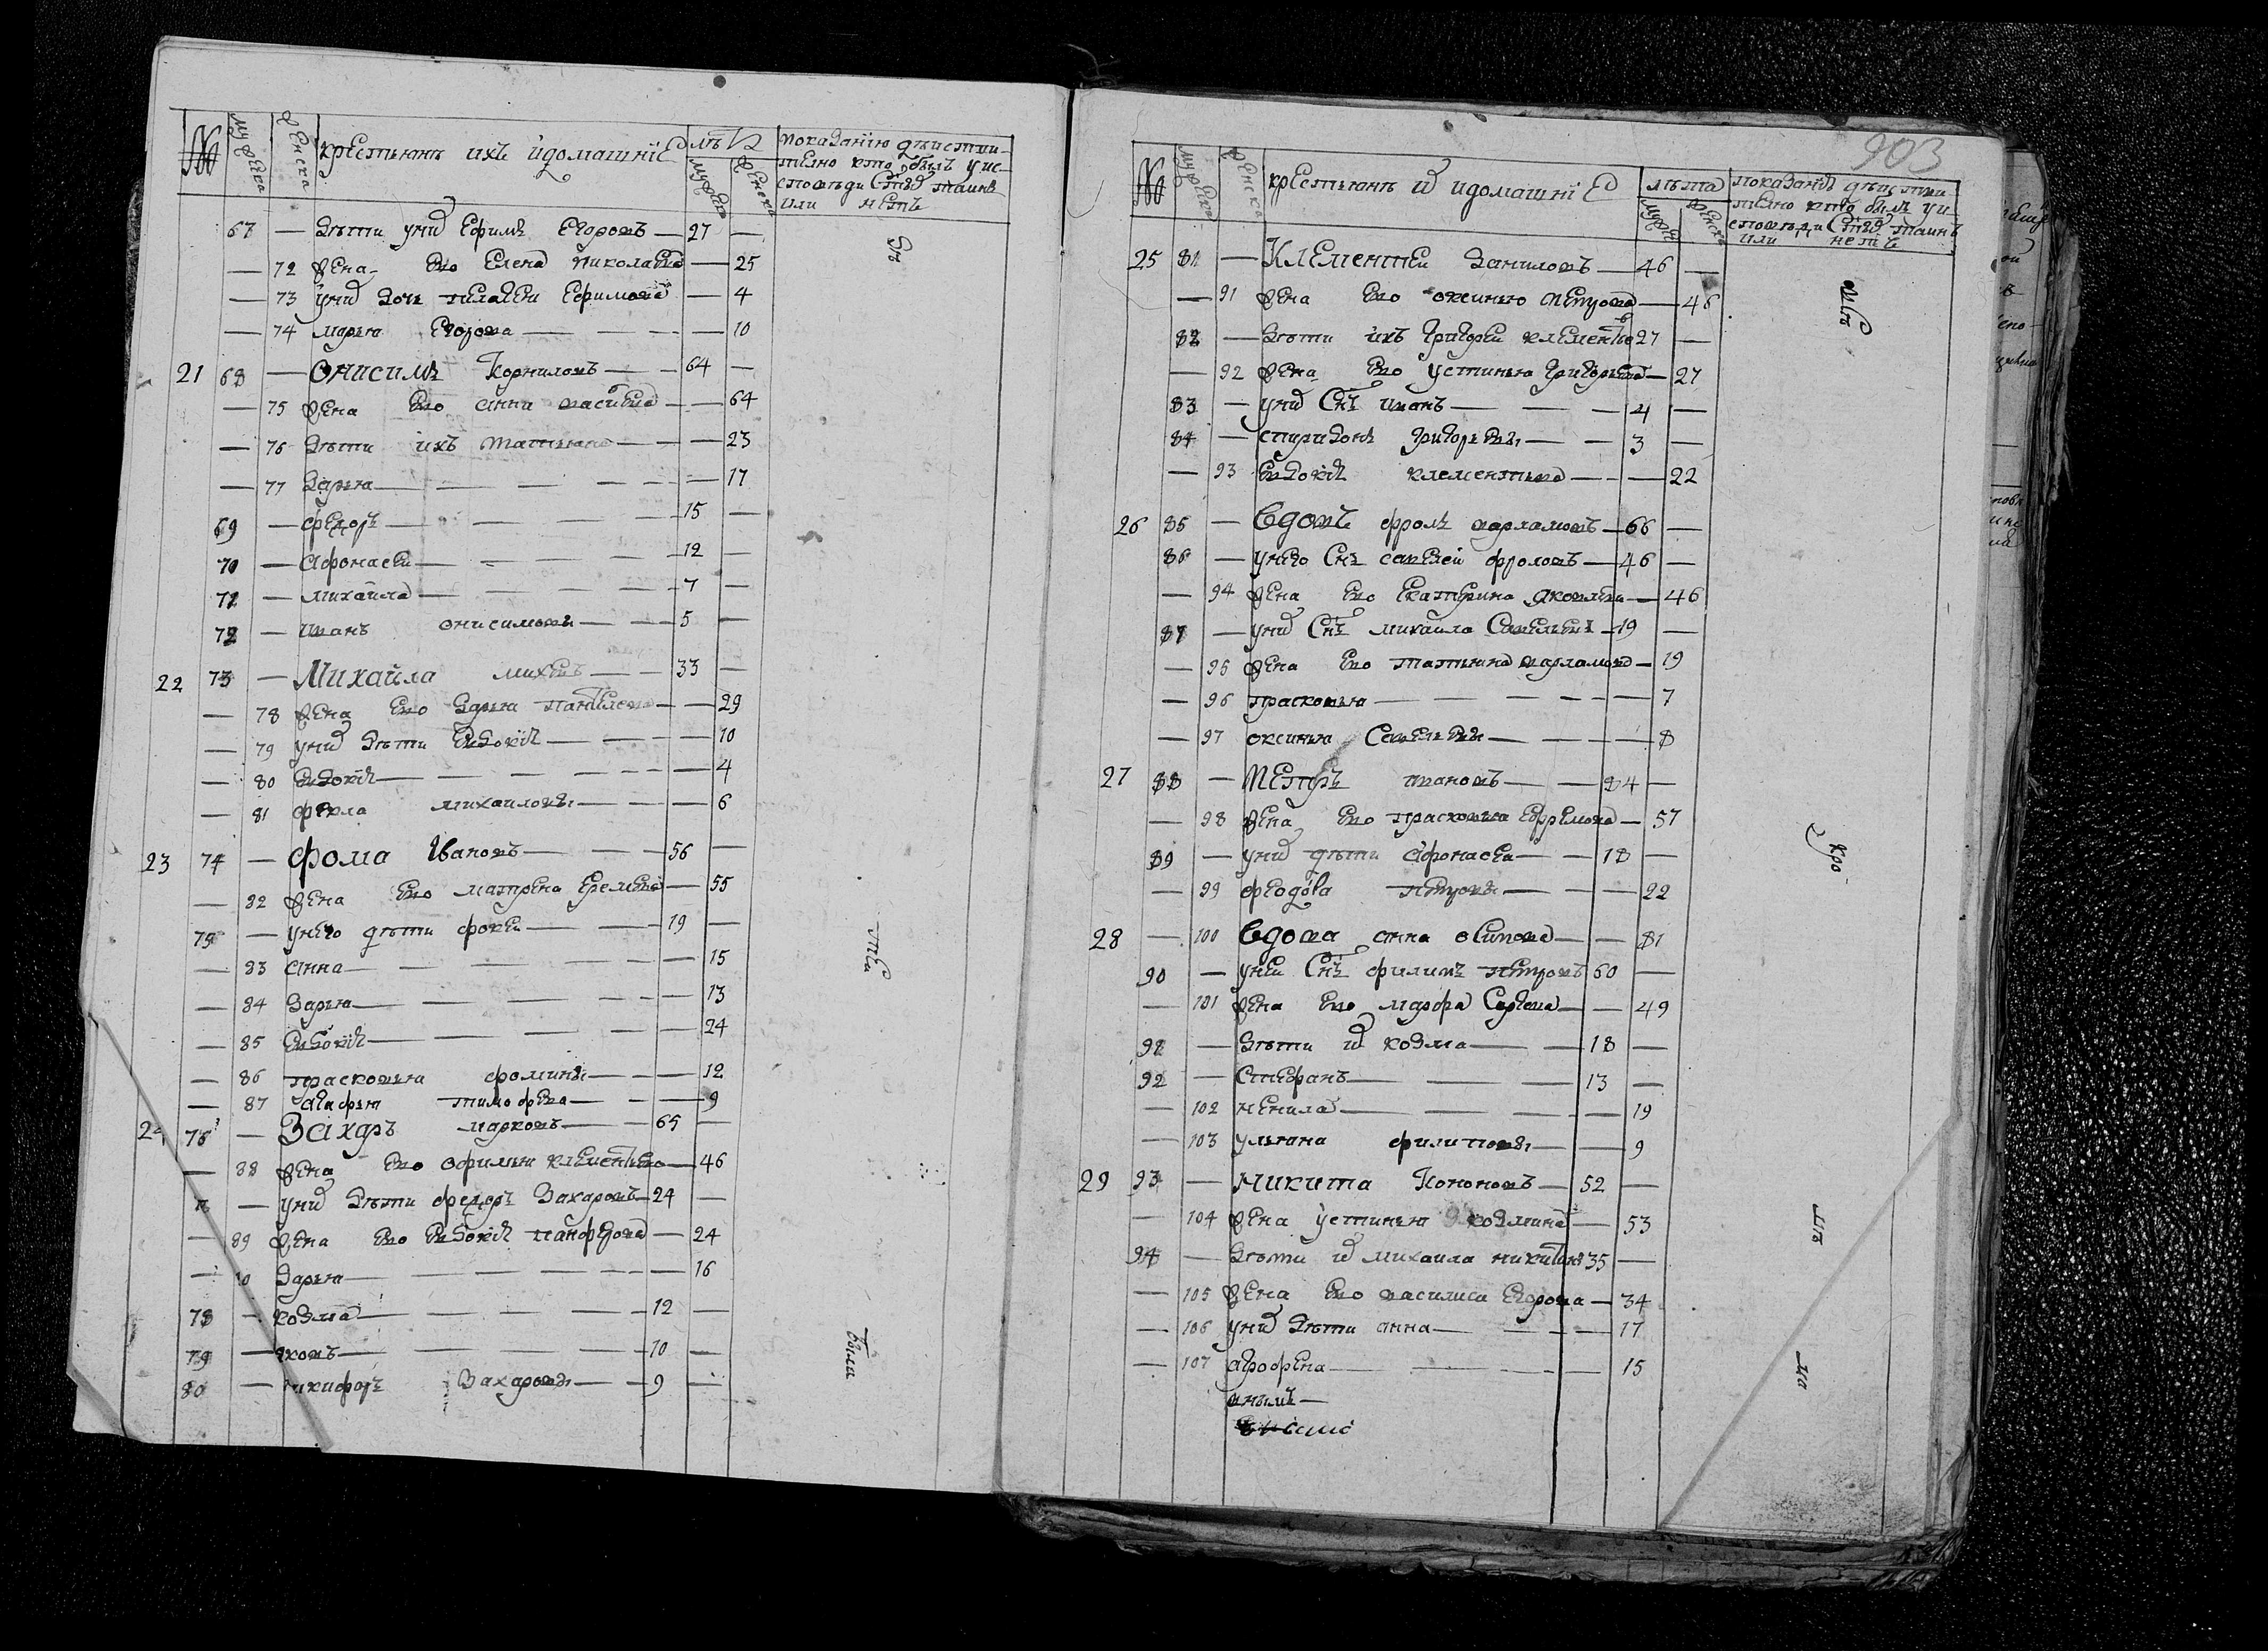 № мужеска женска крестьянъ ихъ и домашніе лѣта мужеск женска показанію дѣистви-
телно кто былъ у ис-
повѣди свѣтыхъ таинъ
или нетъ
67 — Дѣти у них Ефимъ Егоровъ — 27 —
— 72 жена ево Елена николаева — 25
— 73 у них дочь пелагея Ефимова — 4
— 74 марья Егорова — — — 10
21 68 — Онисимъ Корниловъ — — 64 —
— 75 жена ево анна васильева — — 64
— 76 Дѣти ихъ татьяна — — 23
— 77 Дарья — — — — 17
69 — федоръ — — — 15 —
70 — Афонасеи — — — 12 —
71 — михаила — — — 7 —
72 — иванъ онисимовы — — 5 —
22 73 — Михаила михеевъ — — 33 —
— 78 жена ево Дарья пантелеева — — 29
— 79 у них дѣти Евдокія — — — 10
— 80 Евдокія — — — — 4
— 81 фекла михаиловы — — — 6
23 74 — Фома Ивановъ — — — 56 —
— 82 жена ево матрена Еремеева — 55
75 — у него дѣти фокеи — — — 19 —
— 83 Анна — — — — 15
— 84 Дарья — — — — 13
— 85 Евдокія — — — — 24
— 86 прасковья фомины — — — 12
— 87 агафья тимофеева — — — 9
24 76 — Захаръ марковъ — — 65 —
— 88 жена ево офимья клементьева — 46
— у них дѣти федоръ Захаровъ — 24 —
— 89 жена ево Евдокія панферова — 24
— Дарья — — — — 16
78 — козма — — — — 12 —
79 — яковъ — — — — 10 —
80 — никифоръ Захаровы — — 9 —
были
903
№ мужеска женска крестьянъ их и домашніе лѣта мужеск женска показаніе дѣистви-
телно кто былъ у и-
споведи свѣтых таинъ
или нетъ
25 81 — Клементеи Даниловъ — 46 —
— 91 жена ево оксинья петрова — 46
82 — Дѣти ихъ Григореи клементьевъ 27 —
— 92 жена ево устинья Григорьева — 27
83 — у них Снъ иванъ — — — 4 —
84 — спиридонъ Григорьевы — — 3 —
— 93 Евдокія клементьева — — — 22
26 85 — Вдовъ фролъ варламовъ — 66 —
86 — у него Снъ савелеи фроловъ — 46 —
— 94 жена ево Екатерина яковлева — 46
87 — у них Снъ михаило Савельевъ — 19 —
— 95 жена ево татьяна варламова — 19
— 96 прасковья — — — — 7
— 97 оксинья Савельевы — — — — 8
27 88 — Петръ ивановъ — — 24 —
— 98 жена ево прасковья Ефремова — 57
89 — у них дѣти Афонасеи — — 18 —
— 99 федосья петровы — — — 22
28 — 100 Вдова анна осипова — — 81
90 — у неи Снъ филипъ петровъ 60 —
— 101 жена ево марфа Сергеева — — 49
91 — Дѣти их козма — — 18 —
92 — Стефанъ — — — 13 —
— 102 ненила — — — — 19
— 103 ульяна филиповы — — 9
29 93 — Никита Кононовъ — 52 —
— 104 жена устинья козмина — 53
94 — Дѣти их михаила никитинъ 35 —
— 105 жена ево василиса Егорова — 34
— 106 у них дѣти анна — — — — 17
— 107 агрофена — — — — 15
кро-